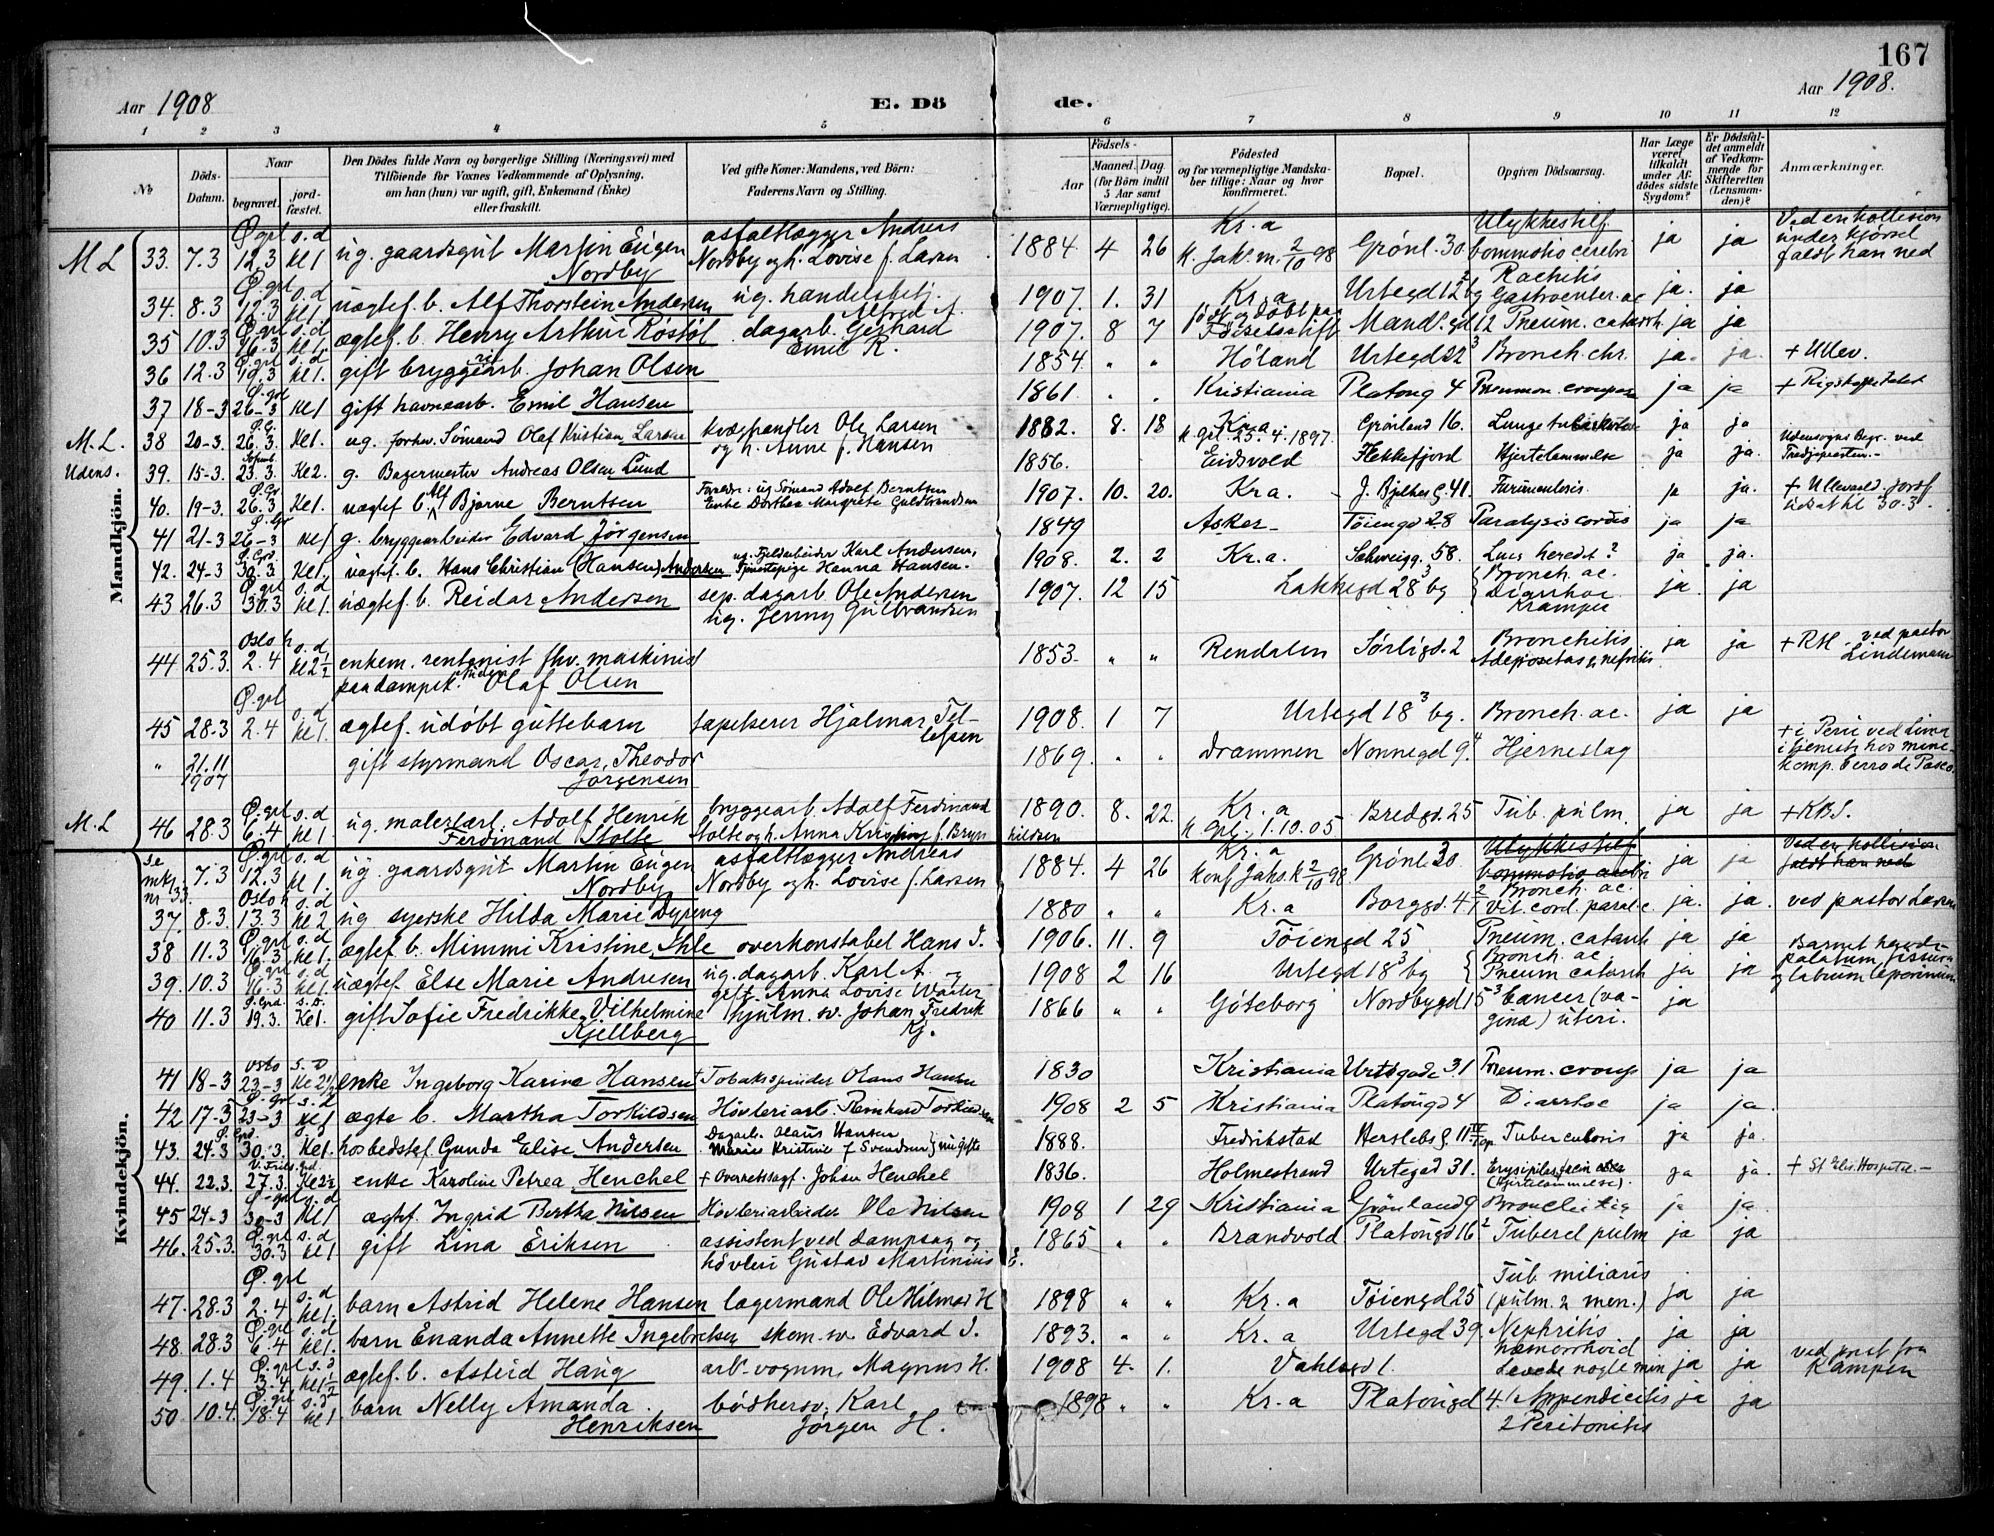 167
Aar 1908 E. Dö de. Aar 1908.
1 2 3 4 5 6 7 8 9 10 11 12
No
Döds-Datum.
Naar begravet. jordfæstet.
Den Dödes fulde Navn og borgerlige Stilling (Næringsvei) med Tilföiende for Voxnes Vedkommende af Oplysning, om han (hun) var ugift, gift, Enkemand (Enke) eller fraskilt.
Ved gifte Koner: Mandens, ved Börn: Faderens Navn og Stilling.
Födsels-
Aar
Maaned. Dag
(for Börn indtil 5 Aar samt Værnepligtige).
Födested og for værnepligtige Mandskaber tillige: Naar og hvor konfirmeret.
Bopæl.
Opgiven Dödsaarsag.
Har Læge været tilkaldt under Afdödes sidste Sygdom?
Er Dödsfaldet anmeldt af Vedkommende for Skifteretten (Lensmanden)?
Anmærkninger.
Mandkjön.
M L 33. 7.3 Ø.grl 12.3 s.d kl 1 ug. gaardsgut Martin Eugen Nordby asfaltlægger Andreas Nordby og h. Lovise f. Larsen 1884 4 26 Kr.a k. Jak. m. 2/10 98 Grønl. 30 Ulykkestilf. commotio cerebri ja ja Ved en kollision under kjørsel faldt han ned
34. 8.3 Ø.grl 12.3 s.d kl 1. uægtef. b. Alf Thorstein Andersen ug. handelsbetj. Alfred A. 1907. 1. 31 Kr.a Urtegd 12² bg Rachitis Gastroenter. ac ja. ja
35 10.3 Ø.grl 16.3 s.d kl 1, ægtef. b. Henry Arthur Røstøl dagarb. Gerhard Emil R. 1907. 8 7 født og døbt paa Fødselsstift Mandl.gd 12 Pneum. catarrh. ja ja
36 12.3 Ø.grl 19.3 s.d kl 1. gift bryggeriarb. Johan Olsen 1854 " " Høland Urtegd 22³ Bronch. chr. ja. ja. + Ullev.
37 18-3 Ø.grl 26-3 kl 1 gift havnearb. Emil Hansen 1861 Kristiania Platoug 4 Pneumon. crouposa ja ja + Rigshospitalet
M.L. 38 20-3. 26.3. Kl 1. ug. forhv. Sømand Olaf Kristian Larsen kvæghandler Ole Larsen og h. Anne f. Hansen 1882. 8. 18 Kr.a k. grl. 25.4.1897. Grønland 16. Lungetuberkulose ja ja
Udens. 39. 15-3. 23.3. Kl 2. g. Bagermester Andreas Olsen Lund 1856. Eidsvold Flekkefjord Hjertelammelse ja ja. Udensogns Begr. ved Tredjepresten.-
40. 19-3. Ø.Gr 26.3 Kl 1. uægtef b. Alf Bjarne Berntsen Forældre: ug Sømand Adolf Berntsen Enke Dorthea Margrete Guldbrandsen 1907. 10. 20. Kr.a. J. Bjelkes G. 41. Furunculosis ja ja. + Ullevaal. Jordf
41 21-3 Ø.Gr 26-3 kl 1 g. bryggearbeider Edvard Jørgensen 1849 Asker Tøiengd 28 Paralysis cordis ja ja
42. 24-3 30.3 Kl 1. uægtef. b. Hans Christian (Hansen) Andersen ug. Fjeldarbeider Karl Andersen, Tjenestepige Hanna Hansen. 1908. 2. 2 Kr.a. Schweigg. 58. Lues heredt ? ja ja.
43 26.3 Ø.grl 30.3 s.d kl 1. uægtef. b. Reidar Andersen sep. dagarb Ole Andersen ug. Jenny Gulbrandsen 1907. 12 15 Lakkegd 28³ bg Bronch. ac. Diarrhoe Kramper ja. ja
44 25.3. Oslo k 2.4 s.d. kl 2½ enkem. rentenist fhv. maskinist paa dampsk. Olaf Olsen 1853. " " Rendalen Sørligd. 2 Bronchitis Adipositas & nefritis ja ja + RH - ved pastor Lindemann
45 28.3 Ø.grl 2.4 s.d kl 1. ægtef. udøbt guttebarn tapetserer Hjalmar Tellefsen 1908 1 7 Urtegd 18³ bg. Bronch. ac. ja ja
" 21.11 1907 gift styrmand Oscar Theodor Jørgensen 1869. " " Drammen Nonnegd 9⁴ Hjerneslag + i Peru ved Lima i tjeneste hos minekomp. Cerro de Pasco.
M.L 46 28.3 Ø.grl 6.4 s.d kl 1 ug. malerlærl. Adolf Henrik Ferdinand Stolte bryggearb Adolf Ferdinand Stolte og h. Anna Kristine f. Brynhildsen 1890. 8. 22. Kr.a k Grl. 1.10.05 Bredgd. 25 Tub. pulm. ja ja + KBS.
Kvindekjön.
Se mkj. nr 33. 7.3 Ø.grl 12.3 s.d kl 1. ug. gaardsgut Martin Eugen Nordby asfaltlægger Andreas Nordby og h. Lovise f. Larsen 1884. 4 26 Kr.a konf Jaks. k 2/10 98 Grønl 30 Ulykkestilf commotio cerebri ja ja Ved en kollision faldt han ned
37. 8.3 Oslo k 13.3 s.d kl 2 ug syerske Hilda Marie Dyreng 1880 " " Kr.a Borggd. 4² Bronch. ac. Vit. cord. paral. c. ja. ja. ved pastor Larsen
38 11.3 Ø.grl 16.3 s.d kl 1. ægtef. b. Mimmi Kristine Ihle overkonstabel Hans I. 1906. 11. 9 Tøiengd 25 Pneum. catarrh ja ja
39. 10.3 Ø.grl 16.3 s.d kl 1. uægtef. Else Marie Andresen ug. dagarb. Karl A. og gift Anna Lovise 1908 2 16 Urtegd 18³ bg Bronch. ac. Pneum catarrh ja ja Barnet havde palatum fissum og labium leporinum
40 11.3 19.3. s.d. Kl 1. gift Sofie Fredrikke Vilhelmine Kjellberg hjulm. sv. Johan Fredrik Kj. 1866 " " Gøteborg Nordbygd 15³ Cancer (vaginæ) uteri. ja
41 18-3 Oslo 23-3 s.d Kl 2½ enke Ingeborg Karine Hansen + Tobaksspinder Olaus Hansen 1830 Kristiania Urtegade 31 Pneum. croup ja ja
42 17.3 Ø.grl 23-3 s.d kl 1 ægte b. Martha Torkildsen Høvleriarb. Reinhard Torkildsen 1908 2 5 Kristiania Platougd 4 Diarrhoe ja ja.
43. 24.3 30.3. Kl 1. hosbedstef. Gunda Elise Andersen Dagarb. Olaus Hansen Marie Kristine f Svendsen } ugifte 1888. Fredrikstad Herslebs G. 11 Tuberculosis ja ja.
44. 22.3. V. Frels.grd. 27.3. Kl 2½ enke Karoline Petrea Henchel + Overretssagf. Johan Henchel 1836. Holmestrand Urtegad 31. (Hjertelammelse). ja ja. + St Elis. Hospital.-
45 24-3 Ø.grl 30-3 s.d Kl 1 ægtef. Ingrid Bertha Nilsen Høvleriarbeider Ole Nilsen 1908 1 29 Kristiania Grønland 9 Bronchitis ja ja.
46. 25.3. Ø.grl 30.3 s.d. kl 1 gift Lina Eriksen assistent ved dampsag og høvleri Gustav Martinius E. 1865 " " Brandvold Platougd 16² Tubercl pulm ja ja
47. 28.3 Ø.grl 2.4 s.d kl 1. barn Astrid Helene Hansen lagermand Ole Hilmar H 1898 " " Kr.a Tøiengd 25 Tub. miliaris (pulm. & men.) ja ja
48. 28.3 Ø.grl 6.4 s.d kl 1. barn Enanda Annette Ingebretsen skom. sv. Edvard I. 1893. " " Kr.a Urtegd 39 Nephritis hæmorrhoid ja ja
49. 1.4 Ø.grl 3.4 s.d kl 1½ ægtef. b. Astrid Haug arb. vognm. Magnus H. 1908 4. 1. Vahlsgd 1. Levede nogle min ja ja ved prest fra Kampen
50 10.4. Ø.grl 18.4 s.d kl 1. barn Nelly Amanda Henriksen bødkersv. Karl Jørgen H. 1898 " " Kr.a Platougd 4 Appendicitis & Peritonitis ja ja